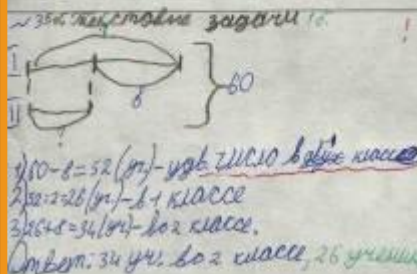 ~35б текстовые задачи 1б. !
I
8
60
II
?
1) 60-8=52 (уч)-удв. число в двух классах
2) 52:2=26(уч)-в 1 классе
3) 26+8=34(уч)-во 2 классе.
Ответ: 34 уч. во 2 классе, 26 учени